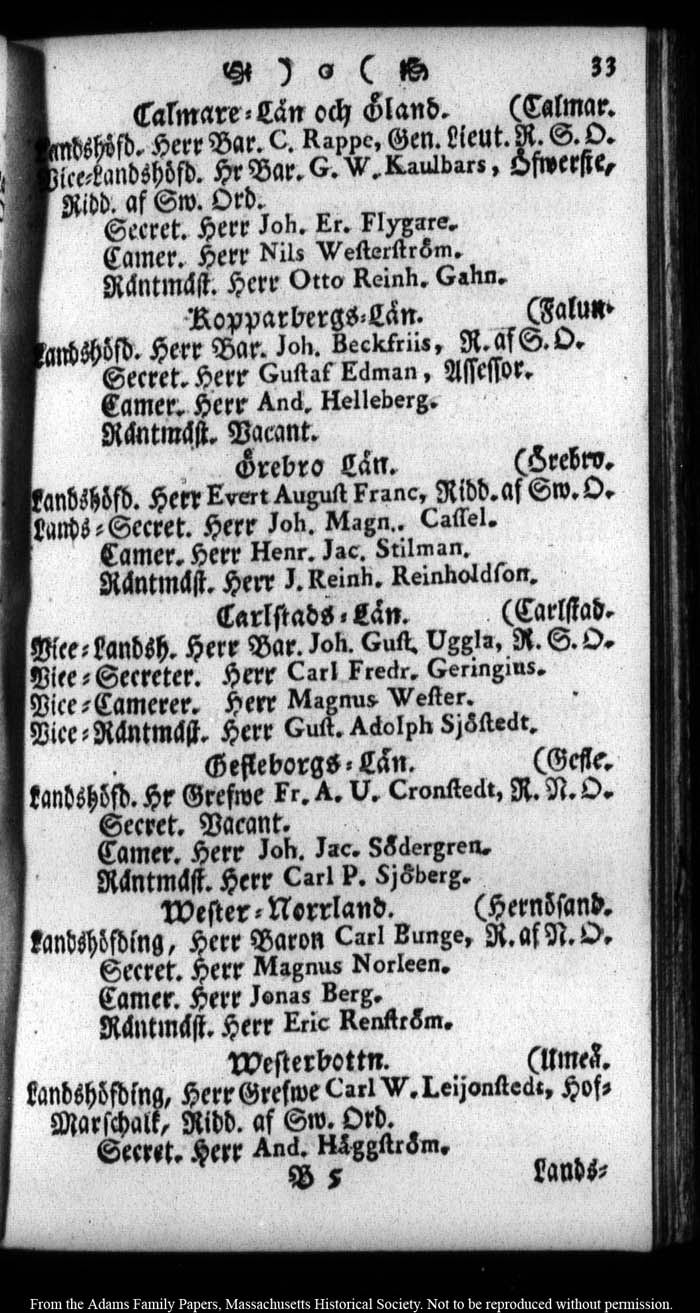 ) o ( 33
Calmare-Län och Öland. (Calmar.
Landshöfd. Herr Bar. C. Rappe, Gen. Lieut. R. S. O.
Vice-Landshöfd. Hr Bar. G. W. Kaulbars, Öfwerste,
Ridd. af Sw. Ord.
Secret. Herr Joh. Er. Flygare.
Camer. Herr Nils Westerström.
Räntmäst. Herr Otto Reinh. Gahn.
Kopparbergs-Län. (Falun.
Landshöfd. Herr Bar. Joh. Beckfriis, R. af S. O.
Secret. Herr Gustaf Edman, Assessor.
Camer. Herr And. Helleberg.
Räntmäst. Vacant.
Örebro Län. (Örebro.
Landshöfd. Herr Evert August Franc, Ridd. af Sw. O.
Lands-Secret. Herr Joh. Magn. Cassel.
Camer. Herr Henr. Jac. Stilman.
Räntmäst. Herr J. Reinh. Reinholdson.
Carlstads-Län. (Carlstad.
Vice-Landsh. Herr Bar. Joh. Gust. Uggla, R. S. O.
Vice-Secreter. Herr Carl Fredr. Geringius.
Vice-Camerer. Herr Magnus Wester.
Vice-Räntmäst. Herr Gust. Adolph Sjöstedt.
Gefleborgs-Län. (Gefle.
Landshöfd. Hr Grefwe Fr. A. U. Cronstedt, R. N. O.
Secret. Vacant.
Camer. Herr Joh. Jac. Södergren.
Räntmäst. Herr Carl P. Sjöberg.
Wester-Norrland. (Hernösand.
Landshöfding, Herr Baron Carl Bunge, R. af N. O.
Secret. Herr Magnus Norleen.
Camer. Herr Jonas Berg.
Räntmäst. Herr Eric Renström.
Westerbottn. (Umeå.
Landshöfding, Herr Grefwe Carl W. Leijonstedt, Hof-
Marschalk, Ridd. af Sw. Ord.
Secret. Herr And. Häggström.
B 5 Lands-
From the Adams Family Papers, Massachusetts Historical Society. Not to be reproduced without permission.